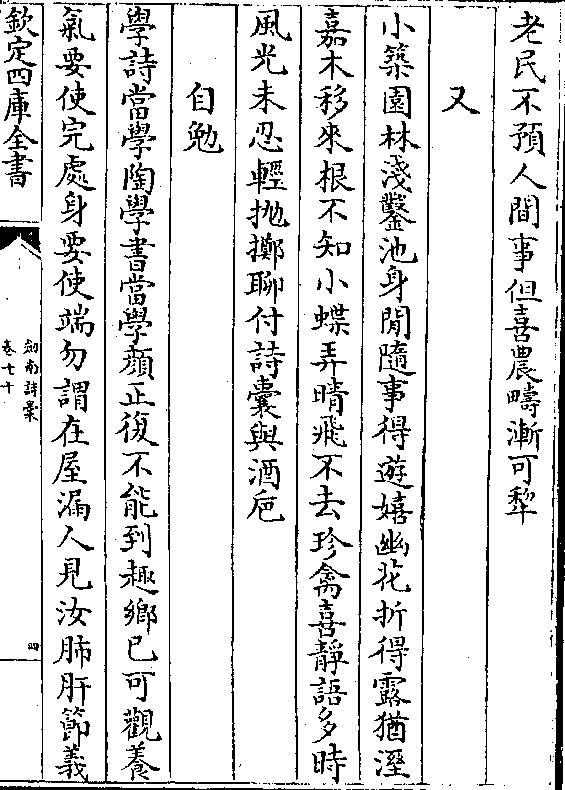 老民不預人間事但喜農疇漸可犂
又
小築園林淺鑿池身閒隨事得遊嬉幽花折得露猶溼
嘉木移來根不知小蝶弄晴飛不去珍禽喜靜語多時
風光未忍輕抛擲聊付詩囊與酒巵
自勉
學詩當學陶學書當學顔正復不能到趣鄉已可觀養
氣要使完處身要使端勿謂在屋漏人見汝肺肝節義
欽定四庫全書
劒南詩藁
卷七十
四